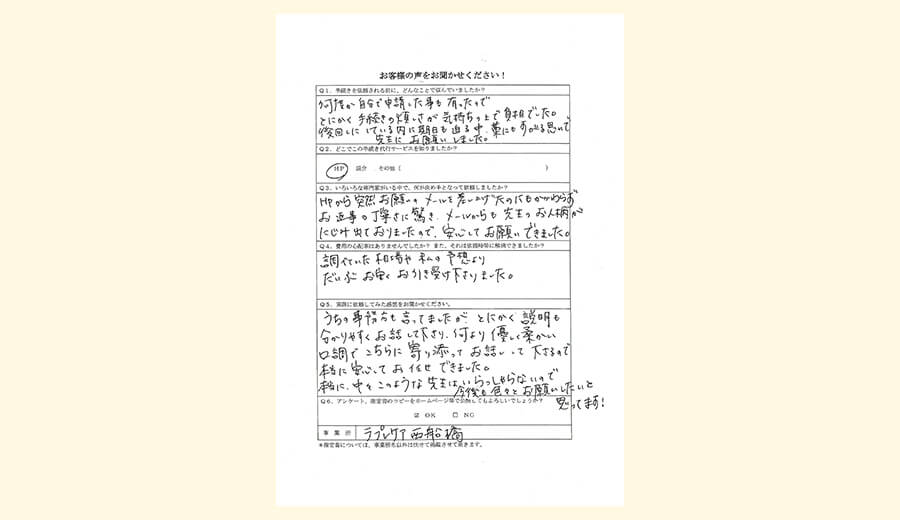 お客様の声をお聞かせください！
Q1．手続きを依頼される前に、どんなことで悩んでいましたか？
何度か自分で申請した事も有ったので
とにかく手続きの煩しさが気持ちの上で負担でした。
後回しにしている内に期日も迫る中、藁にもすがる思いで
先生にお願いしました。
Q2．どこでこの手続き代行サービスを知りましたか？
HP 紹介 その他（ ）
Q3．いろいろな専門家がいる中で、何が決め手となって依頼しましたか？
HPから突然お願いのメールを差し上げたのにもかかわらず
お返事の丁寧さに驚き、メールからも先生のお人柄が
にじみ出ておりましたので、安心してお願いできました。
Q4．費用の心配事はありませんでしたか？また、それは依頼時等に解決できましたか？
調べていた相場や私の予想より
だいぶお安くお引き受け下さりました。
Q5．実際に依頼してみた感想をお聞かせください。
うちの事務方も言ってましたが、とにかく説明も
分かりやすくお話して下さり、何より優しく柔かい
口調でこちらに寄り添ってお話しして下さるので
本当に安心してお任せできました。
本当に、中々このような先生はいらっしゃらないので
今後も色々とお願いしたいと
思ってます！
Q6．アンケート、推定書のコピーをホームページ等で公開してもよろしいでしょうか？
☑ OK □ NG
事業所 ラプレケア西船橋
＊推定書については、事業所名以外は伏せて掲載させて頂きます。